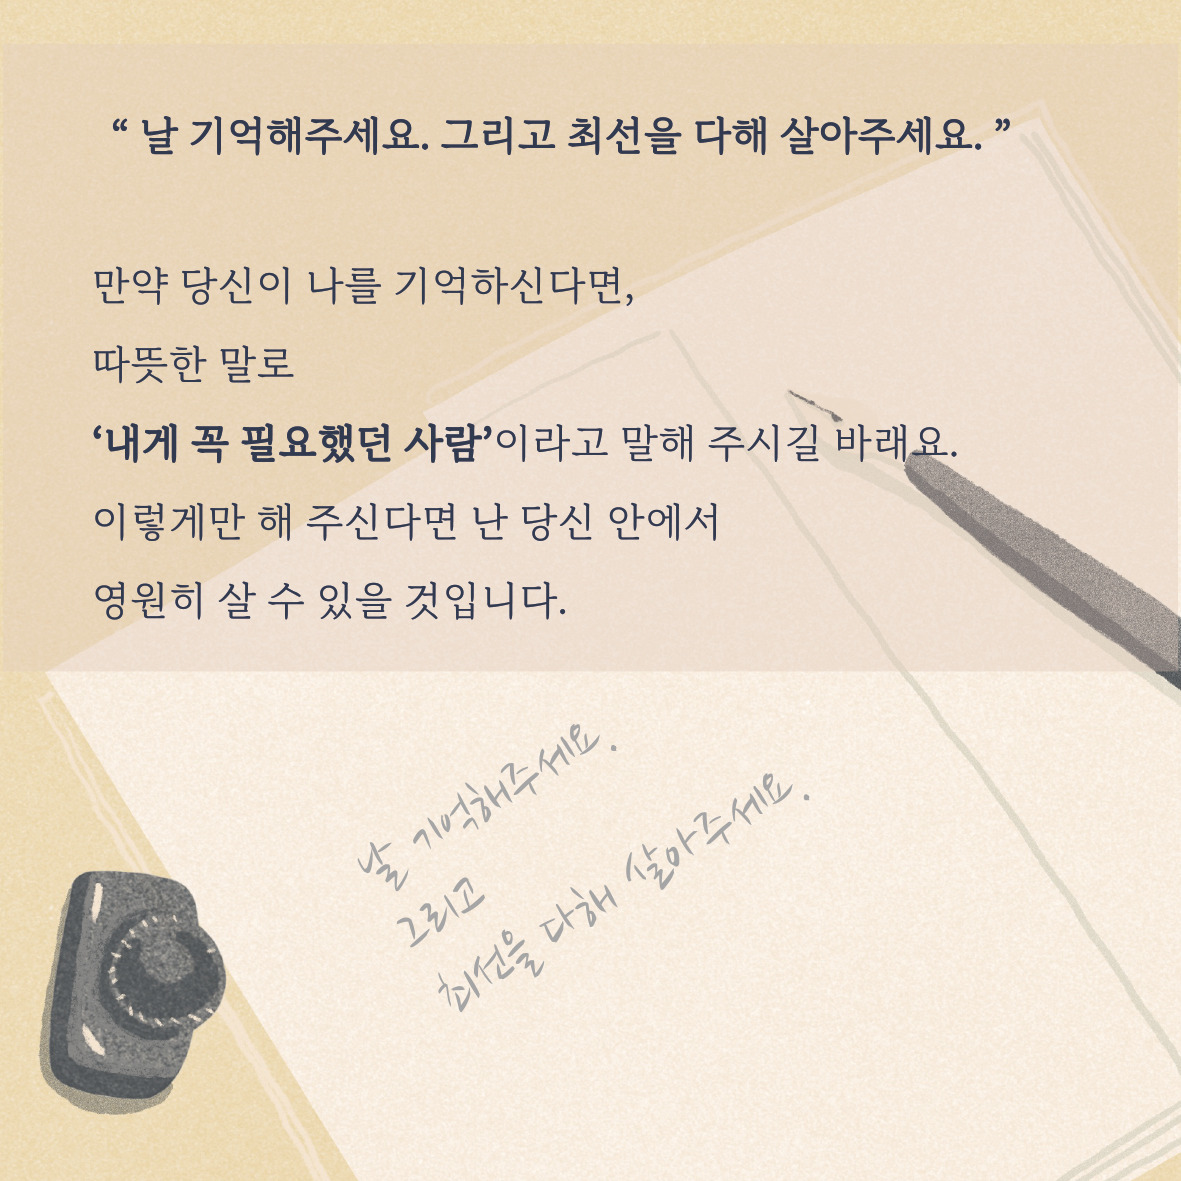 “ 날 기억해주세요. 그리고 최선을 다해 살아주세요. ”
만약 당신이 나를 기억하신다면,
따뜻한 말로
‘내게 꼭 필요했던 사람’이라고 말해 주시길 바래요.
이렇게만 해 주신다면 난 당신 안에서
영원히 살 수 있을 것입니다.
날 기억해주세요.
그리고
최선을 다해 살아주세요.